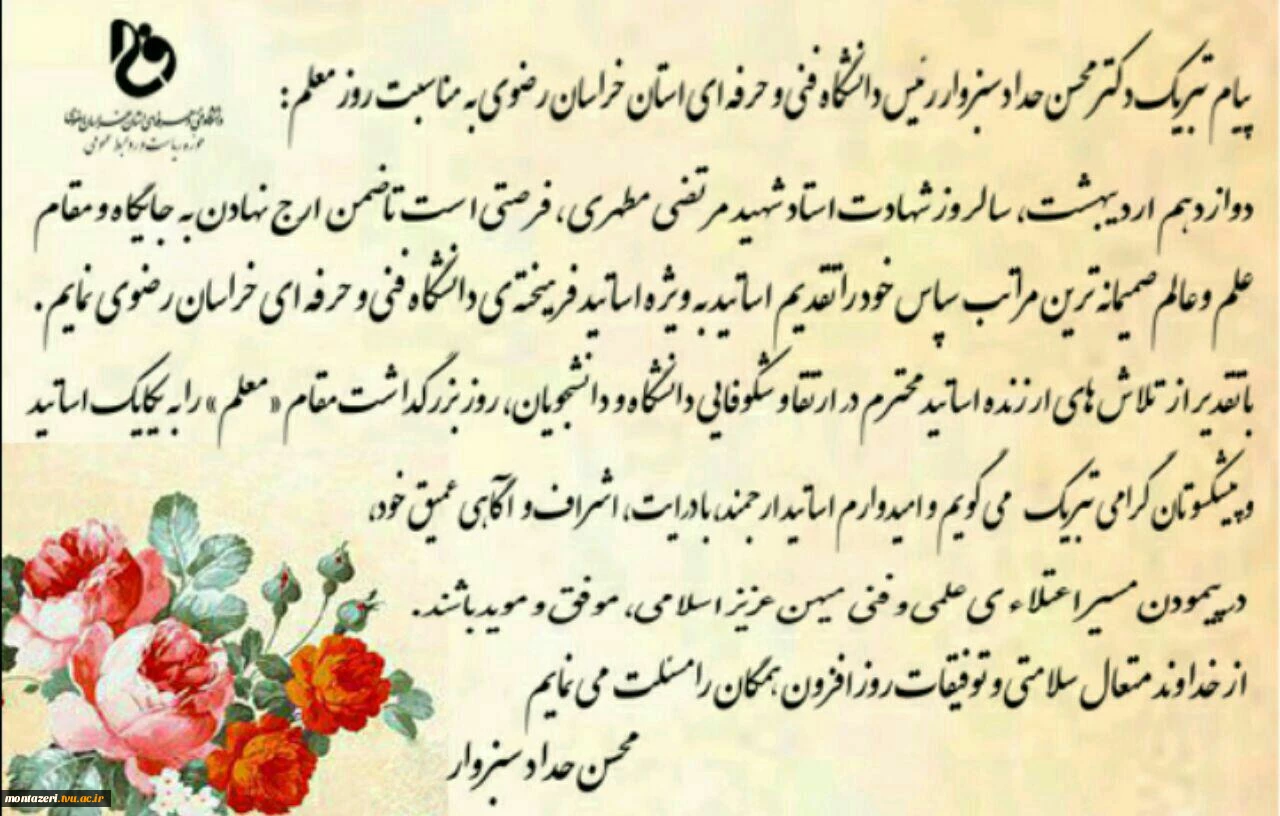 دانشگاه فنی و حرفه ای استان خراسان رضوی
حوزه ریاست و روابط عمومی
پیام تبریک دکتر محسن حداد سبزوار رئیس دانشگاه فنی و حرفه ای استان خراسان رضوی به مناسبت روز معلم :
دوازدهم اردیبهشت، سالروز شهادت استاد شهید مرتضی مطهری ، فرصتی است تا ضمن ارج نهادن به جایگاه و مقام
علم و عالم صمیمانه ترین مراتب سپاس خود را تقدیم اساتید به ویژه اساتید فرهیخته ی دانشگاه فنی و حرفه ای خراسان رضوی نمایم .
با تقدیر از تلاش های ارزنده اساتید محترم در ارتقا و شکوفایی دانشگاه و دانشجویان، روز بزرگداشت مقام « معلم » را به یکایک اساتید
و پیشکسوتان گرامی تبریک می گویم و امیدوارم اساتید ارجمند، با درایت، اشراف و آگاهی عمیق خود،
در پیمودن مسیر اعتلاء ی علمی و فنی میهن عزیز اسلامی، موفق و موید باشند .
از خداوند متعال سلامتی و توفیقات روز افزون همگان را مسئلت می نمایم
محسن حداد سبزوار
montazeri.tvu.ac.ir